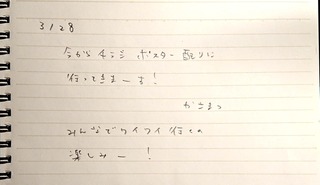 3/28
今から ポスター 配りに
行ってきまーす!
みんなでワイワイ行くの
楽しみー!